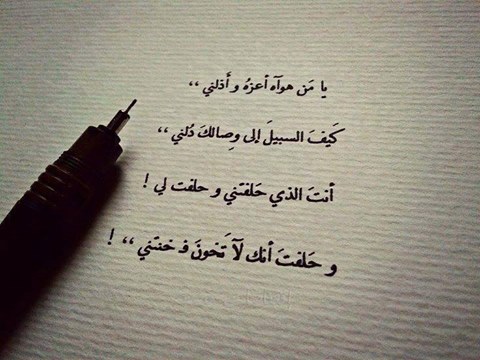 يا مَن هوآه أعزهُ و أَذلني ،،
كَيفَ السبيلَ إلى وِصالكَ دُلني ،،
أنتَ الذي حَلفتني و حلفت لي !
و حَلفتَ أنك لآ تَخونَ فـ خنتني ،، !